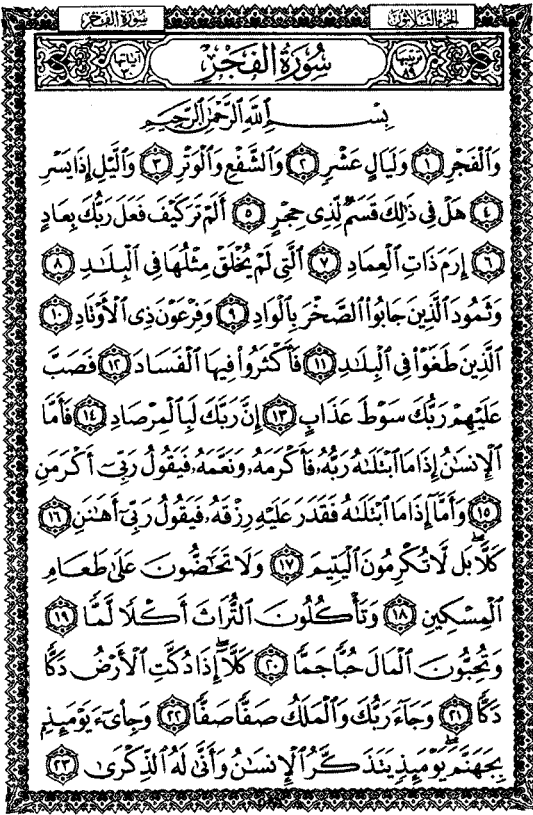 الجزء الثلاثون سورة الفجر
ترتيبها ٨٩ سُورَةُ الفَجْرِ آياتها ٣٠
بِسْمِ اللَّهِ الرَّحْمَٰنِ الرَّحِيمِ
وَالْفَجْرِ ١ وَلَيَالٍ عَشْرٍ ٢ وَالشَّفْعِ وَالْوَتْرِ ٣ وَالَّيْلِ إِذَا يَسْرِ
٤ هَلْ فِي ذَٰلِكَ قَسَمٌ لِّذِي حِجْرٍ ٥ أَلَمْ تَرَ كَيْفَ فَعَلَ رَبُّكَ بِعَادٍ
٦ إِرَمَ ذَاتِ الْعِمَادِ ٧ الَّتِي لَمْ يُخْلَقْ مِثْلُهَا فِي الْبِلَٰدِ ٨
وَثَمُودَ الَّذِينَ جَابُوا الصَّخْرَ بِالْوَادِ ٩ وَفِرْعَوْنَ ذِي الْأَوْتَادِ ١٠
الَّذِينَ طَغَوْا فِي الْبِلَٰدِ ١١ فَأَكْثَرُوا فِيهَا الْفَسَادَ ١٢ فَصَبَّ
عَلَيْهِمْ رَبُّكَ سَوْطَ عَذَابٍ ١٣ إِنَّ رَبَّكَ لَبِالْمِرْصَادِ ١٤ فَأَمَّا
الْإِنسَٰنُ إِذَا مَا ابْتَلَىٰهُ رَبُّهُ فَأَكْرَمَهُ وَنَعَّمَهُ فَيَقُولُ رَبِّي أَكْرَمَنِ
١٥ وَأَمَّا إِذَا مَا ابْتَلَىٰهُ فَقَدَرَ عَلَيْهِ رِزْقَهُ فَيَقُولُ رَبِّي أَهَٰنَنِ ١٦
كَلَّا بَل لَّا تُكْرِمُونَ الْيَتِيمَ ١٧ وَلَا تَحَٰضُّونَ عَلَىٰ طَعَامِ
الْمِسْكِينِ ١٨ وَتَأْكُلُونَ التُّرَاثَ أَكْلًا لَّمًّا ١٩
وَتُحِبُّونَ الْمَالَ حُبًّا جَمًّا ٢٠ كَلَّا إِذَا دُكَّتِ الْأَرْضُ دَكًّا
دَكًّا ٢١ وَجَاءَ رَبُّكَ وَالْمَلَكُ صَفًّا صَفًّا ٢٢ وَجِاْىٓءَ يَوْمَئِذٍ
بِجَهَنَّمَ يَوْمَئِذٍ يَتَذَكَّرُ الْإِنسَٰنُ وَأَنَّىٰ لَهُ الذِّكْرَىٰ ٢٣